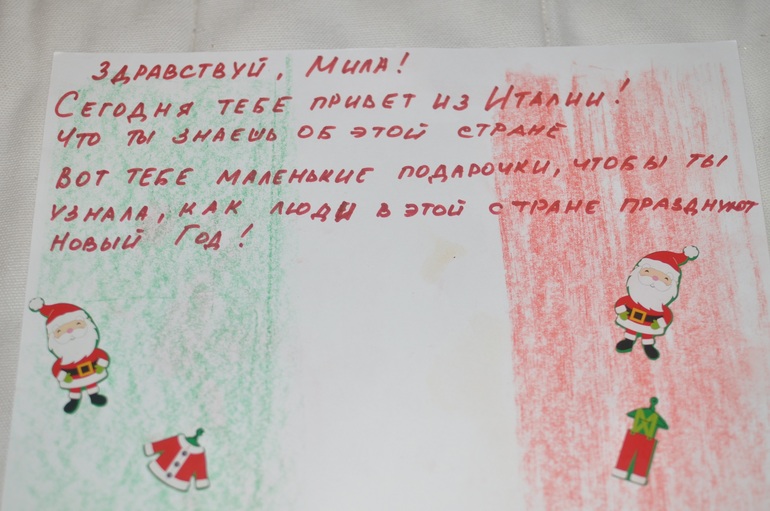 Здравствуй, Мила!
Сегодня тебе привет из Италии!
Что ты знаешь об этой стране
Вот тебе маленькие подарочки, чтобы ты
узнала, как люди в этой стране празднуют
Новый Год!